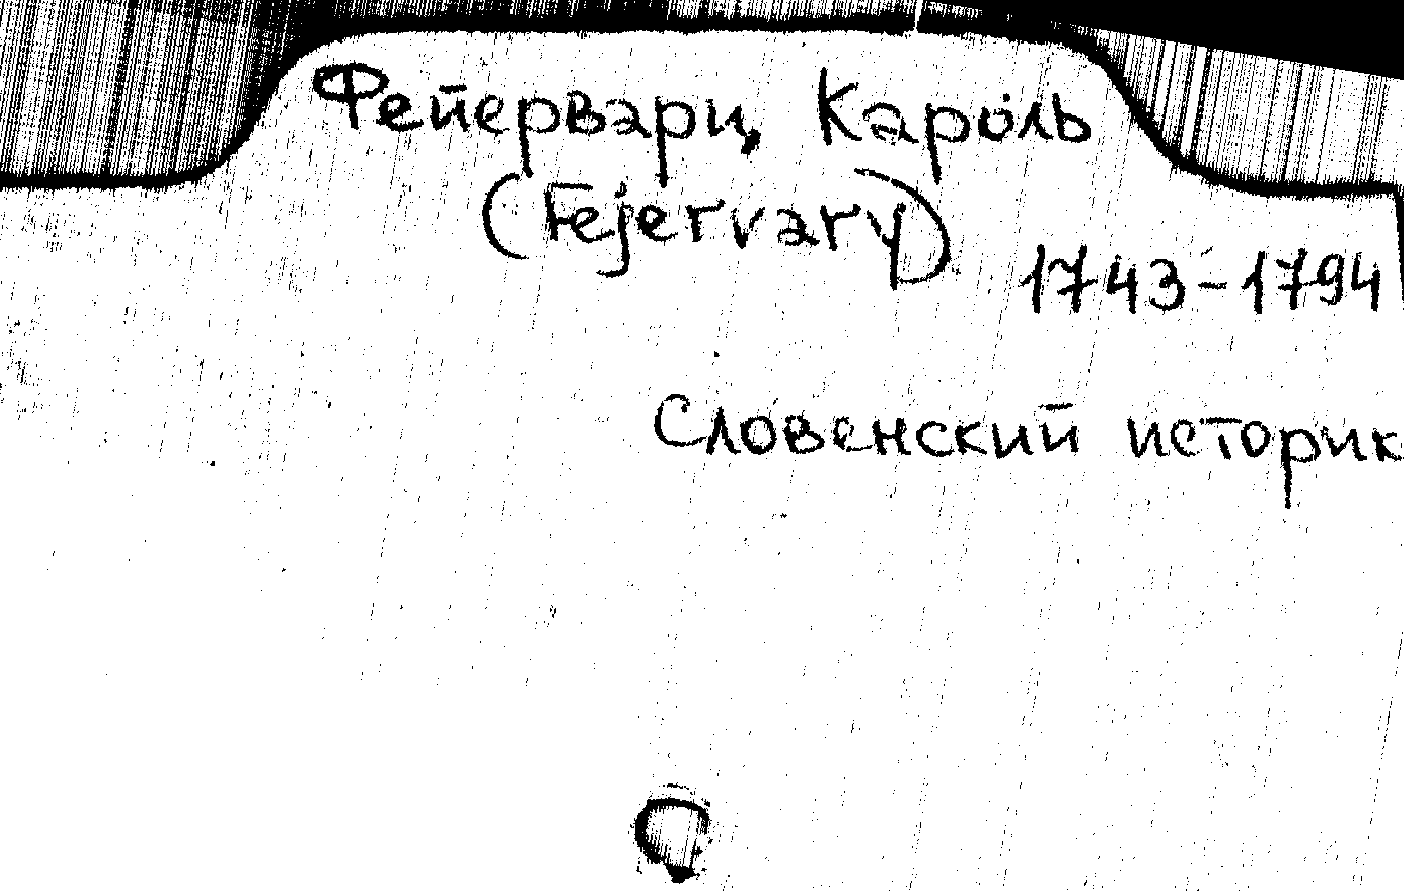 Фейервари, Кароль
(Fejervary)
1743-1794
Словенский историк